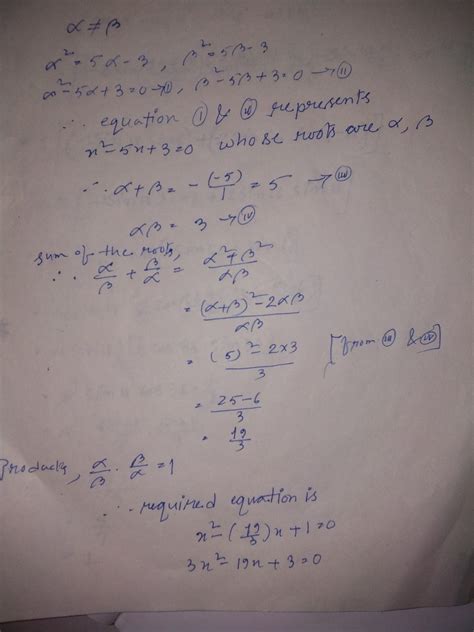 α ≠ β
α² = 5α - 3 , β² = 5β - 3
α² - 5α + 3 = 0 → (i) , β² - 5β + 3 = 0 → (ii)
∴ equation (i) & (ii) represents
x² - 5x + 3 = 0 whose roots are α, β
∴ α + β = - (-5)/1 = 5 → (iii)
αβ = 3 → (iv)
sum of the roots,
∴ α/β + β/α = (α² + β²)/αβ
= ((α + β)² - 2αβ)/αβ
= ((5)² - 2×3)/3 [from (iii) & (iv)]
= (25 - 6)/3
= 19/3
Products, α/β · β/α = 1
∴ required equation is
x² - (19/3)x + 1 = 0
3x² - 19x + 3 = 0